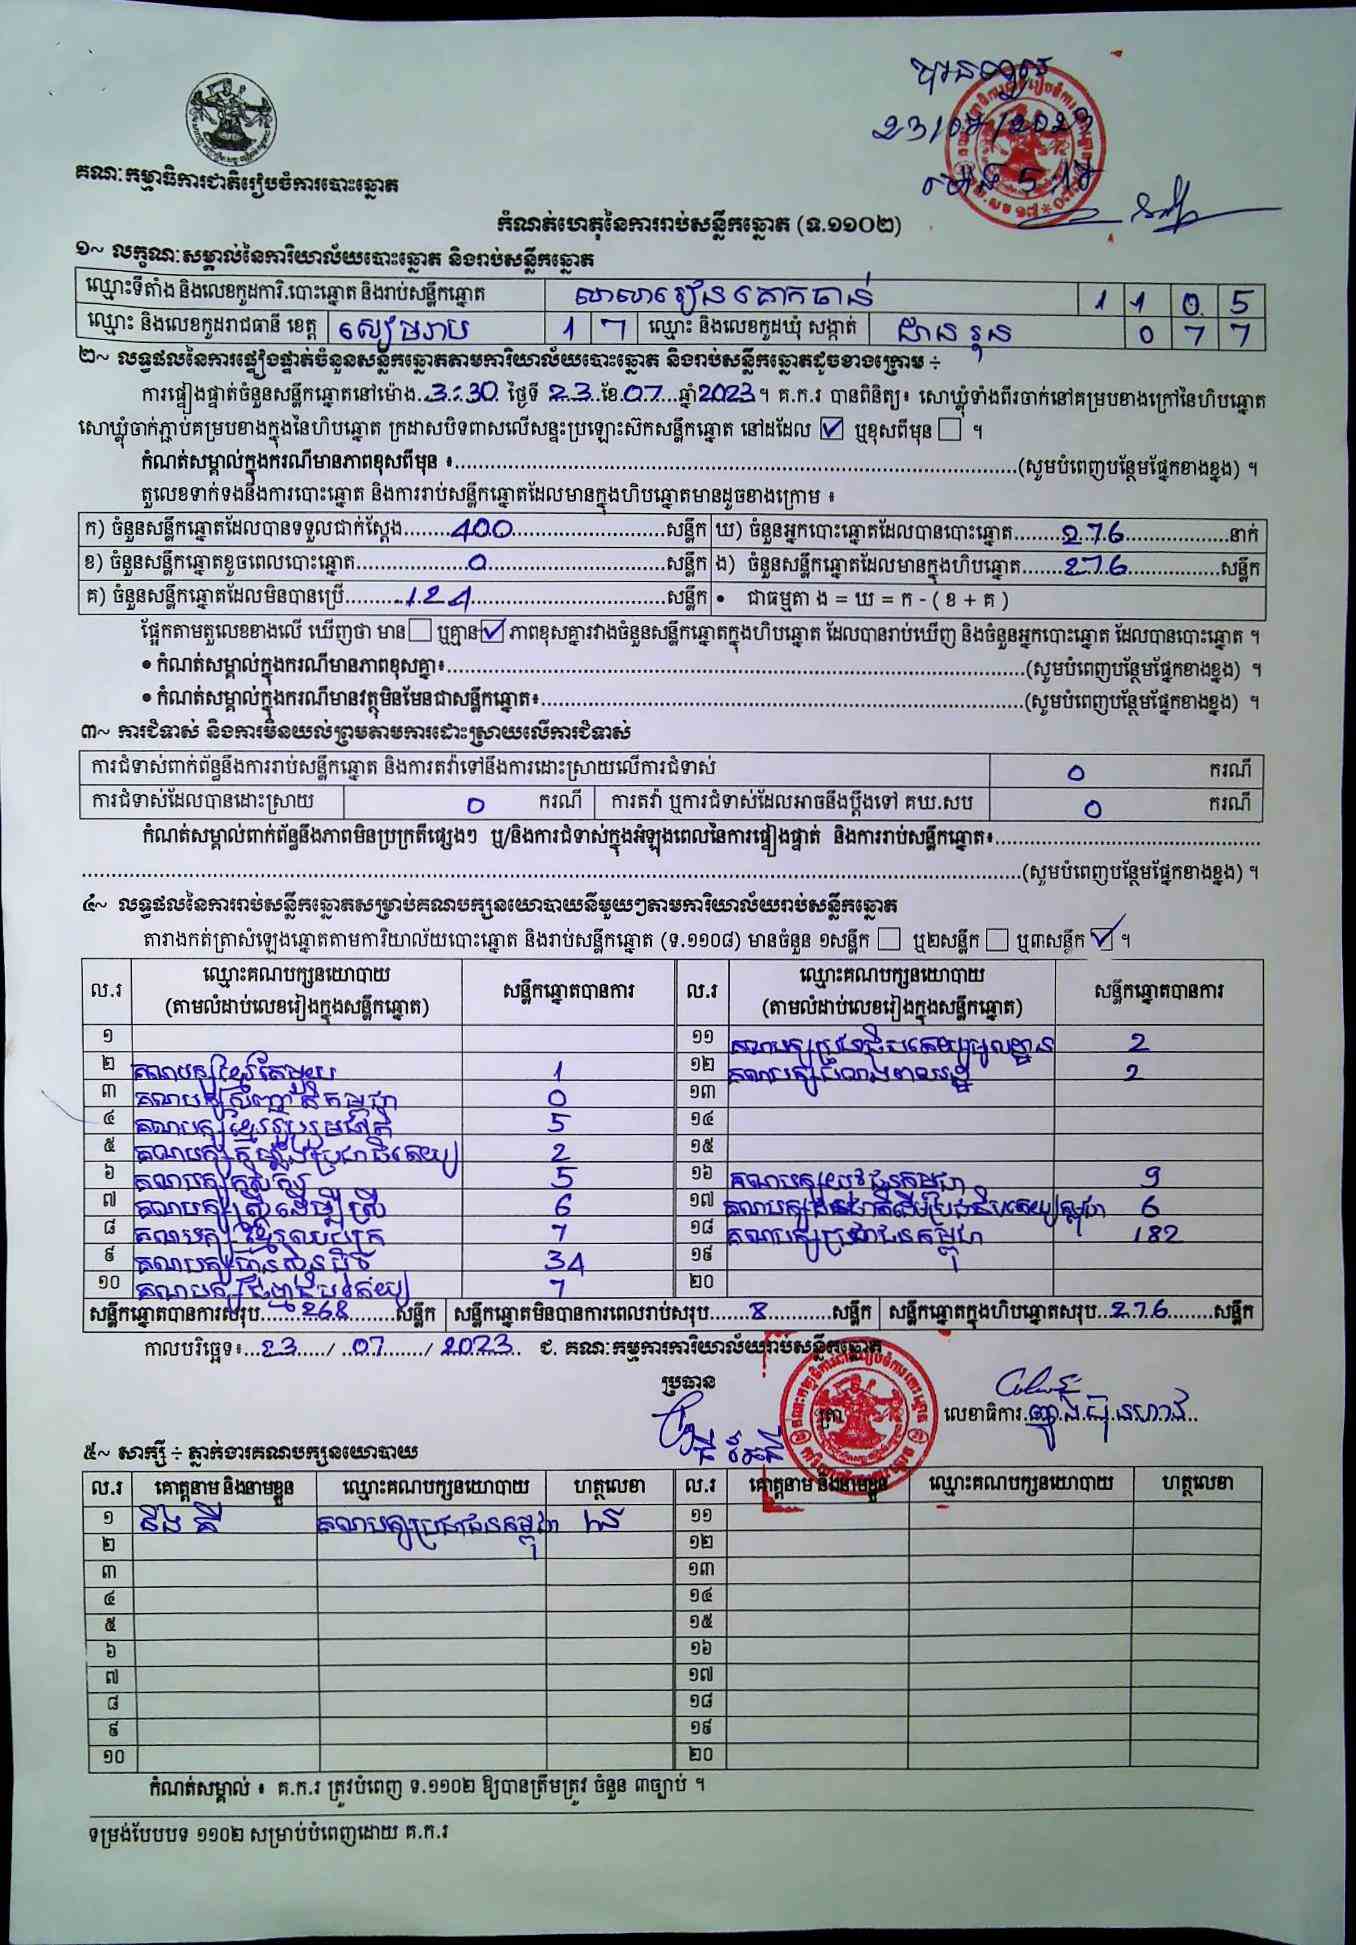 បានទទួល
23/07/2023
ម៉ោង 5:17
គណៈកម្មាធិការជាតិរៀបចំការបោះឆ្នោត
កំណត់ហេតុនៃការរាប់សន្លឹកឆ្នោត (ទ.១១០២)
១~ លក្ខណៈសម្គាល់នៃការិយាល័យបោះឆ្នោត និងរាប់សន្លឹកឆ្នោត
ឈ្មោះទីតាំង និងលេខកូដការិ.បោះឆ្នោត និងរាប់សន្លឹកឆ្នោត សាលារៀន គោកចាន់ 1 1 0 5
ឈ្មោះ និងលេខកូដរាជធានី ខេត្ត សៀមរាប 1 7 ឈ្មោះ និងលេខកូដឃុំ សង្កាត់ ដានរុន 0 7 7
២~ លទ្ធផលនៃការផ្ទៀងផ្ទាត់ចំនួនសន្លឹកឆ្នោតតាមការិយាល័យបោះឆ្នោត និងរាប់សន្លឹកឆ្នោតដូចខាងក្រោម ÷
ការផ្ទៀងផ្ទាត់ចំនួនសន្លឹកឆ្នោតនៅម៉ោង 3:30 ថ្ងៃទី 23 ខែ 07 ឆ្នាំ 2023 ។ គ.ក.រ បានពិនិត្យ៖ សោឃ្លុំទាំងពីរចាក់នៅគម្របខាងក្រៅនៃហិបឆ្នោត
សោឃ្លុំចាក់ភ្ជាប់គម្របខាងក្នុងនៃហិបឆ្នោត ក្រដាសបិទពាសលើសន្ទះប្រឡោះស៊កសន្លឹកឆ្នោត នៅដដែល ☑ ឬខុសពីមុន ☐ ។
កំណត់សម្គាល់ក្នុងករណីមានភាពខុសពីមុន ៖ (សូមបំពេញបន្ថែមផ្នែកខាងខ្នង) ។
តួលេខទាក់ទងនឹងការបោះឆ្នោត និងការរាប់សន្លឹកឆ្នោតដែលមានក្នុងហិបឆ្នោតមានដូចខាងក្រោម ៖
ក) ចំនួនសន្លឹកឆ្នោតដែលបានទទួលជាក់ស្តែង 400 សន្លឹក ឃ) ចំនួនអ្នកបោះឆ្នោតដែលបានបោះឆ្នោត 276 នាក់
ខ) ចំនួនសន្លឹកឆ្នោតខូចពេលបោះឆ្នោត 0 សន្លឹក ង) ចំនួនសន្លឹកឆ្នោតដែលមានក្នុងហិបឆ្នោត 276 សន្លឹក
គ) ចំនួនសន្លឹកឆ្នោតដែលមិនបានប្រើ 124 សន្លឹក • ជាធម្មតា ង = ឃ = ក - ( ខ + គ )
ផ្អែកតាមតួលេខខាងលើ ឃើញថា មាន ☐ ឬគ្មាន ☑ ភាពខុសគ្នារវាងចំនួនសន្លឹកឆ្នោតក្នុងហិបឆ្នោត ដែលបានរាប់ឃើញ និងចំនួនអ្នកបោះឆ្នោត ដែលបានបោះឆ្នោត ។
• កំណត់សម្គាល់ក្នុងករណីមានភាពខុសគ្នា៖ (សូមបំពេញបន្ថែមផ្នែកខាងខ្នង) ។
• កំណត់សម្គាល់ក្នុងករណីមានវត្ថុមិនមែនជាសន្លឹកឆ្នោត៖ (សូមបំពេញបន្ថែមផ្នែកខាងខ្នង) ។
៣~ ការជំទាស់ និងការមិនយល់ព្រមតាមការដោះស្រាយលើការជំទាស់
ការជំទាស់ពាក់ព័ន្ធនឹងការរាប់សន្លឹកឆ្នោត និងការតវ៉ាទៅនឹងការដោះស្រាយលើការជំទាស់ 0 ករណី
ការជំទាស់ដែលបានដោះស្រាយ 0 ករណី ការតវ៉ា ឬការជំទាស់ដែលអាចនឹងប្តឹងទៅ គឃ.សប 0 ករណី
កំណត់សម្គាល់ពាក់ព័ន្ធនឹងភាពមិនប្រក្រតីផ្សេងៗ ឬ/និងការជំទាស់ក្នុងអំឡុងពេលនៃការផ្ទៀងផ្ទាត់ និងការរាប់សន្លឹកឆ្នោត៖
(សូមបំពេញបន្ថែមផ្នែកខាងខ្នង) ។
៤~ លទ្ធផលនៃការរាប់សន្លឹកឆ្នោតសម្រាប់គណបក្សនយោបាយនីមួយៗតាមការិយាល័យរាប់សន្លឹកឆ្នោត
តារាងកត់ត្រាសំឡេងឆ្នោតតាមការិយាល័យបោះឆ្នោត និងរាប់សន្លឹកឆ្នោត (ទ.១១០៨) មានចំនួន ១សន្លឹក ☐ ឬ២សន្លឹក ☐ ឬ៣សន្លឹក ☑ ។
ល.រ ឈ្មោះគណបក្សនយោបាយ (តាមលំដាប់លេខរៀងក្នុងសន្លឹកឆ្នោត) សន្លឹកឆ្នោតបានការ ល.រ ឈ្មោះគណបក្សនយោបាយ (តាមលំដាប់លេខរៀងក្នុងសន្លឹកឆ្នោត) សន្លឹកឆ្នោតបានការ
១ ១១ គណបក្សប្រជាធិបតេយ្យមូលដ្ឋាន 2
២ គណបក្សខ្មែរតែមួយ 1 ១២ គណបក្សជំលាងពលរដ្ឋ 2
៣ គណបក្សសញ្ជាតិកម្ពុជា 0 ១៣
៤ គណបក្សខ្មែររួបរួមជាតិ 5 ១៤
៥ គណបក្សកម្លាំងប្រជាធិបតេយ្យ 2 ១៥
៦ គណបក្សកសិករ 5 ១៦ គណបក្សយុវជនកម្ពុជា 9
៧ គណបក្សស្ត្រីដើម្បីស្ត្រី 6 ១៧ គណបក្សជនជាតិដើមប្រជាធិបតេយ្យកម្ពុជា 6
៨ គណបក្សខ្មែរឈប់ក្រ 7 ១៨ គណបក្សប្រជាជនកម្ពុជា 182
៩ គណបក្សហ៊្វុនស៊ិនប៉ិច 34 ១៩
១០ គណបក្សធម្មាធិបតេយ្យ 7 ២០
សន្លឹកឆ្នោតបានការសរុប 268 សន្លឹក សន្លឹកឆ្នោតមិនបានការពេលរាប់សរុប 8 សន្លឹក សន្លឹកឆ្នោតក្នុងហិបឆ្នោតសរុប 276 សន្លឹក
កាលបរិច្ឆេទ៖ 23 / 07 / 2023 ជ. គណៈកម្មការការិយាល័យរាប់សន្លឹកឆ្នោត
ប្រធាន ត្រា លេខាធិការ
៥~ សាក្សី ÷ ភ្នាក់ងារគណបក្សនយោបាយ
ល.រ គោត្តនាម និងនាមខ្លួន ឈ្មោះគណបក្សនយោបាយ ហត្ថលេខា ល.រ គោត្តនាម និងនាមខ្លួន ឈ្មោះគណបក្សនយោបាយ ហត្ថលេខា
១ គណបក្សប្រជាជនកម្ពុជា ១១
២ ១២
៣ ១៣
៤ ១៤
៥ ១៥
៦ ១៦
៧ ១៧
៨ ១៨
៩ ១៩
១០ ២០
កំណត់សម្គាល់ ៖ គ.ក.រ ត្រូវបំពេញ ទ.១១០២ ឱ្យបានត្រឹមត្រូវ ចំនួន ៣ច្បាប់ ។
ទម្រង់បែបបទ ១១០២ សម្រាប់បំពេញដោយ គ.ក.រ